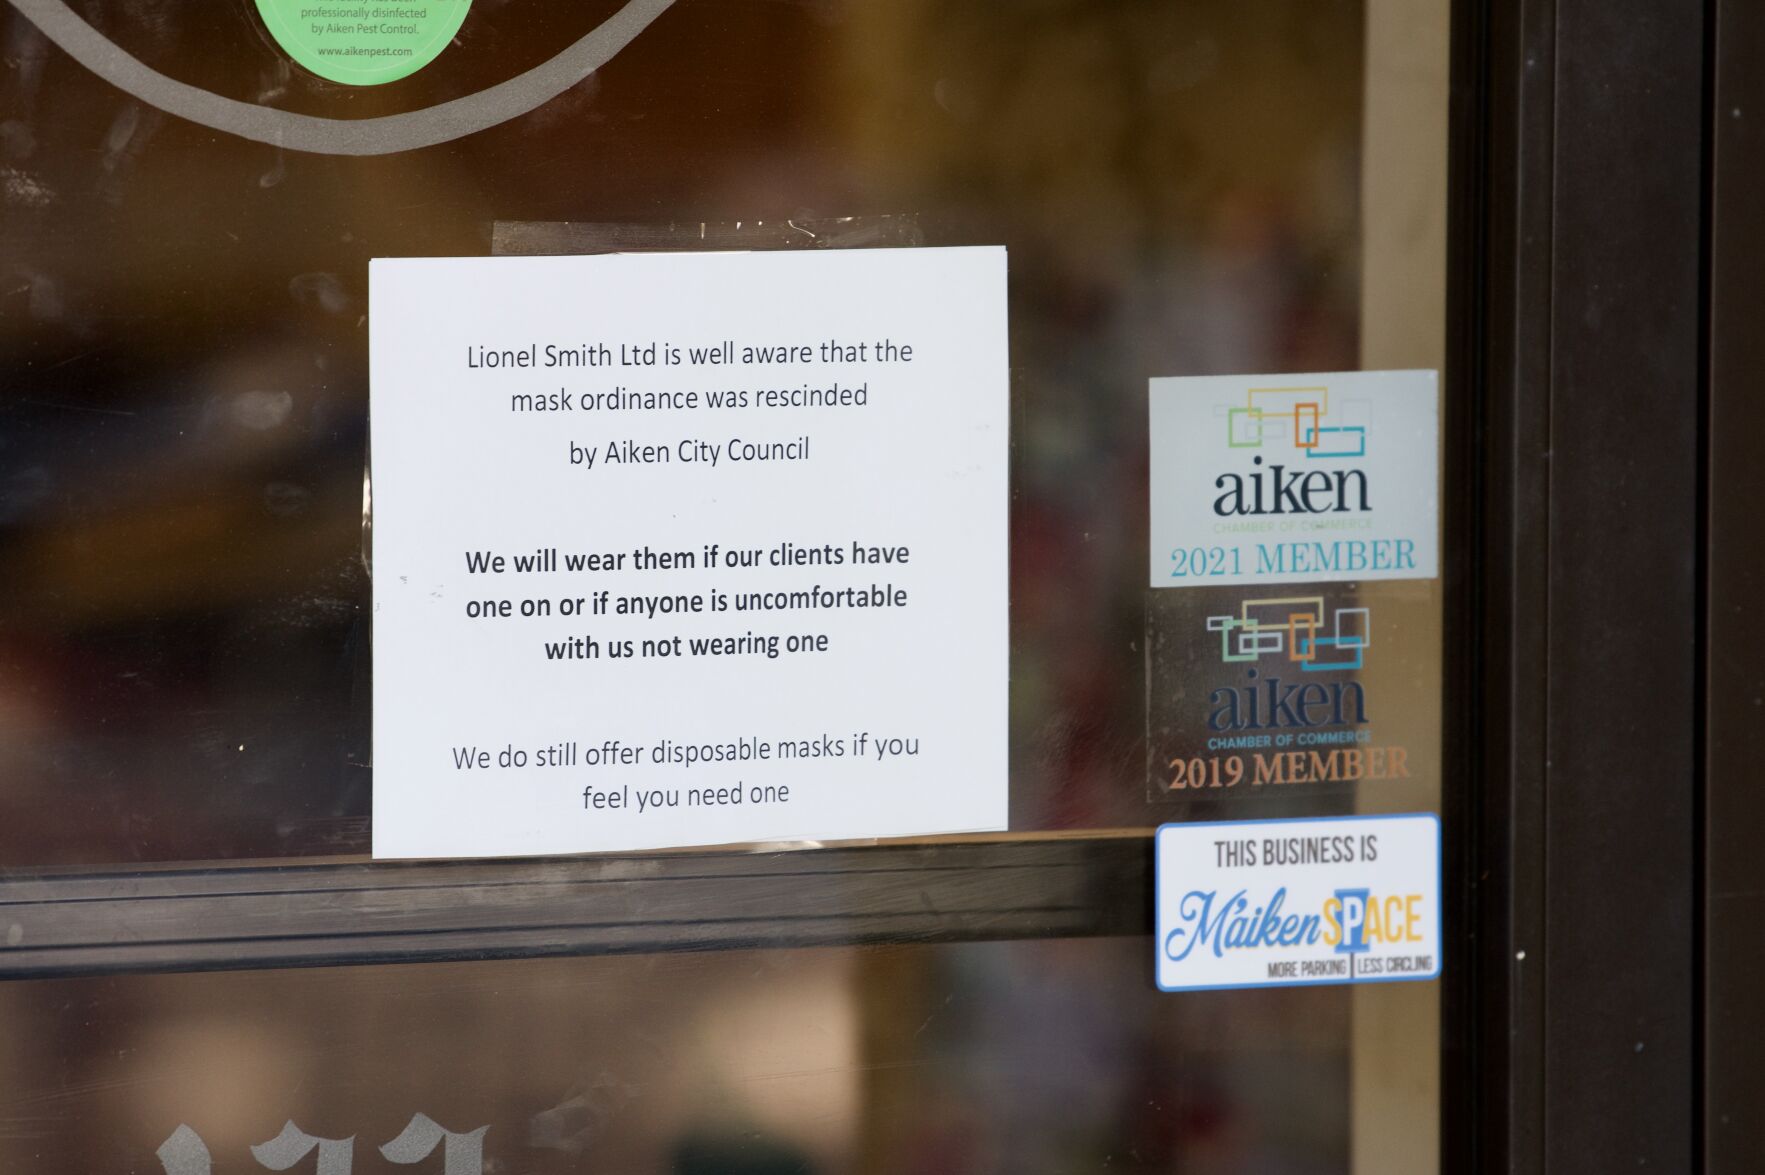 professionally disinfected
by Aiken Pest Control.
www.aikenpest.com
Lionel Smith Ltd is well aware that the
mask ordinance was rescinded
by Aiken City Council
We will wear them if our clients have
one on or if anyone is uncomfortable
with us not wearing one
We do still offer disposable masks if you
feel you need one
aiken
CHAMBER OF COMMERCE
2021 MEMBER
aiken
CHAMBER OF COMMERCE
2019 MEMBER
THIS BUSINESS IS
M'aiken SPACE
MORE PARKING LESS CIRCLING